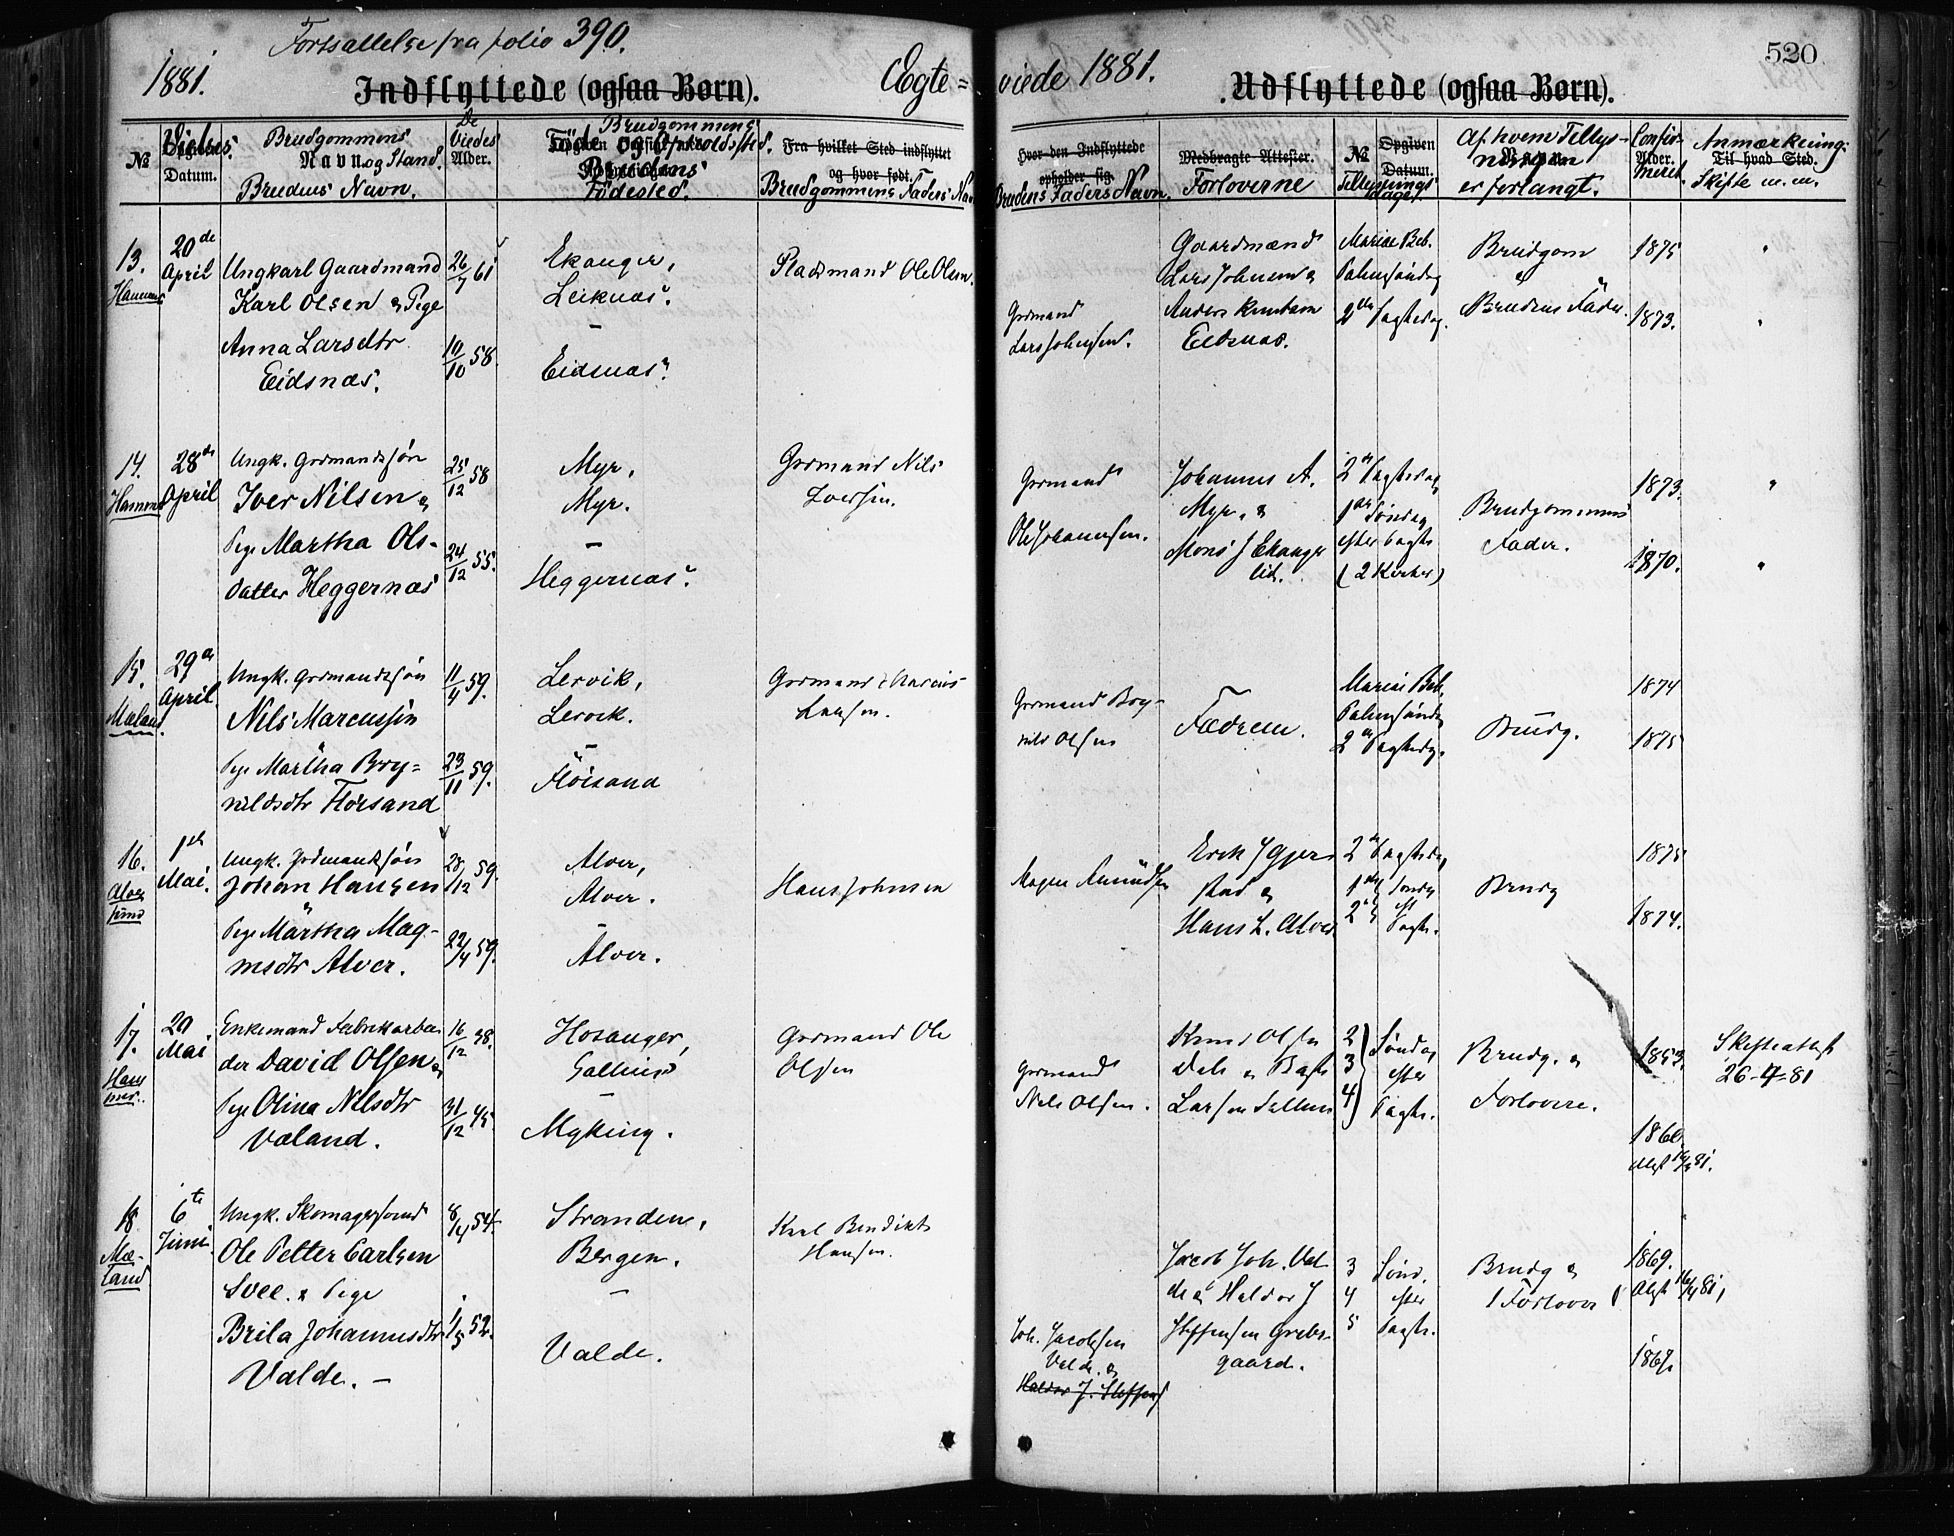 Fortsættelse fra folio 390.
1881.
Indflyttede (ogsaa Børn).
Ægte=
viede 1881.
Udflyttede (ogsaa Børn).
520
№
Vielses
Datum.
Brudgommens
Navn og Stand.
Brudens Navn.
De
Viedes
Alder.
Brudgommens
Føde og Opholdssted.
Brudens
Fødested.
Fra hvilket Sted indflyttet
og hvor født.
Brudgommens Faders Navn
Hvor den Indflyttede
opholder sig.
Brudens Faders Navn.
Medbragte Attester.
Forloverne
№
Opgiven
Datum.
Tillysnings
dage.
Af hvem Tillys-
ningen
er forlangt.
Confir-
Alder.
meret
Anmærkning:
Til hvad Sted.
Skifte m.m.
13.
Hammer
20de
April
Ungkarl Gaardmand
Karl Olsen & Pige
Anna Larsdtr
Eidsnæs.
26/7 61
10/10 58.
Ekanger,
Leiknæs.
–
Eidsnæs.
Pladsmand Ole Olsen.
Grdmand
Lars Johnsen.
Gaardmænd
Lars Johnsen &
Anders Knutsen
Eidsnæs.
Mariæ Beb.
Palmesøndag
2den Pagtsdag.
Brudgom
&
Brudens Fader.
1875
1873.
14.
Hammer
28de
April
Ungk. Grdmandssøn
Iver Nilsen &
Pige Martha Ols-
datter Heggernæs
25/12 58
24/12 55.
Myr,
Myr.
–
Heggernæs.
Grdmand Nils
Iversen.
Grdmand
Ole Johannesen.
Johannes A.
Myr, &
Mons J Ekanger
lid.
2den Pagtsdag
1ste Søndag
efter Pagts
(2 Kirker)
Brudgommens
Fader.
1873.
1870.
15.
Mæland.
29de
April
Ungk. Grdmandssøn
Nils Marcussen
Pige Martha Bry=
nildsdtr Fløisand
11/4 59.
23/11 59.
Lervik,
Lervik.
–
Fløisand
Grdmand Marcus
Larsen.
Grdmand Bry-
nild Olsen
Fædrene.
Mariæ Beb.
Palmesøndag
2den Pagtsdg.
Brudg.
1874
1875
16.
Alver
sund
1ste
Mai.
Ungk. Grdmandssøn
Johan Hansen
&
Pige Martha Mag-
nesdtr Alver.
28/12 59.
22/4 59.
Alver,
Alver.
–
Alver.
Hans Johnsen
Magne Amundsen
Erik J Gjer-
stad &
Hans L. Alver
2den Pagtsdag
1ste Søndg
2den eft
Pagts.
Brudg
1875
1874.
17.
Ham
mer.
20
Mai
Enkemand Fabrikarbei
der David Olsen &
Pige Olina Nilsdtr
Væland.
16/12 38.
31/12 45
Hosanger,
–
Myking.
Grdmand Ole
Olsen
Grdmand
Nils Olsen.
Knud Olsen
Dale &
Larsen
2
3
4
Søndag
efter
Pagts.
Brudg. &
Forlovere.
1853.
1860.
Skifteattest
26-4-81
18
Mæ-
land
6te
Juni
Ungk. Skomagersvend
Ole Petter Carlsen
Svee. & Pige
Brita Johannesdtr
Valde. –
8/4 54.
1/5 52.
Stranden,
Bergen.
–
Valde.
Karl Bendikt
Hansen.
Joh. Jacobsen
Valde. &
Haldor J. Steffens
Jacob Joh. Val
de & Haldor J
Steffensen Grebs-
gaard.
3
4
5
Sønd.
efter
Pagts.
Brudg &
1 Forlover
1869.
1867.